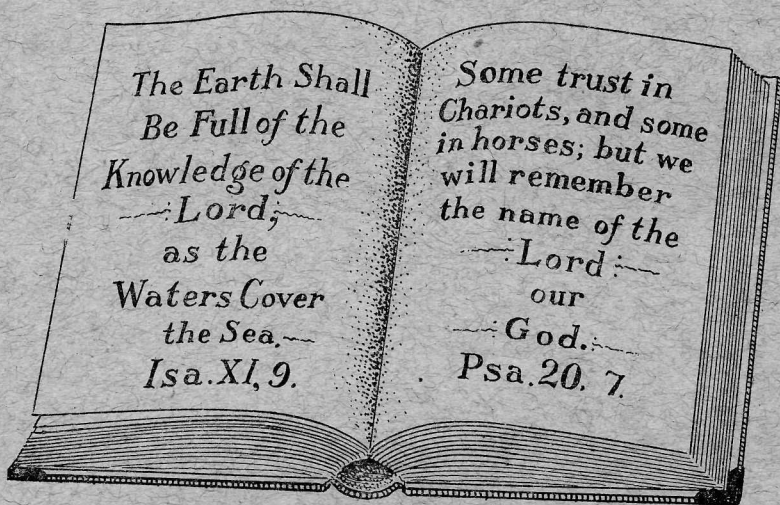 The Earth Shall
Be Full of the
Knowledge of the
Lord;
as the
Waters Cover
the Sea.
Isa. XI, 9.
Some trust in
Chariots, and some
in horses; but we
will remember
the name of the
Lord
our
God.
Psa. 20. 7.